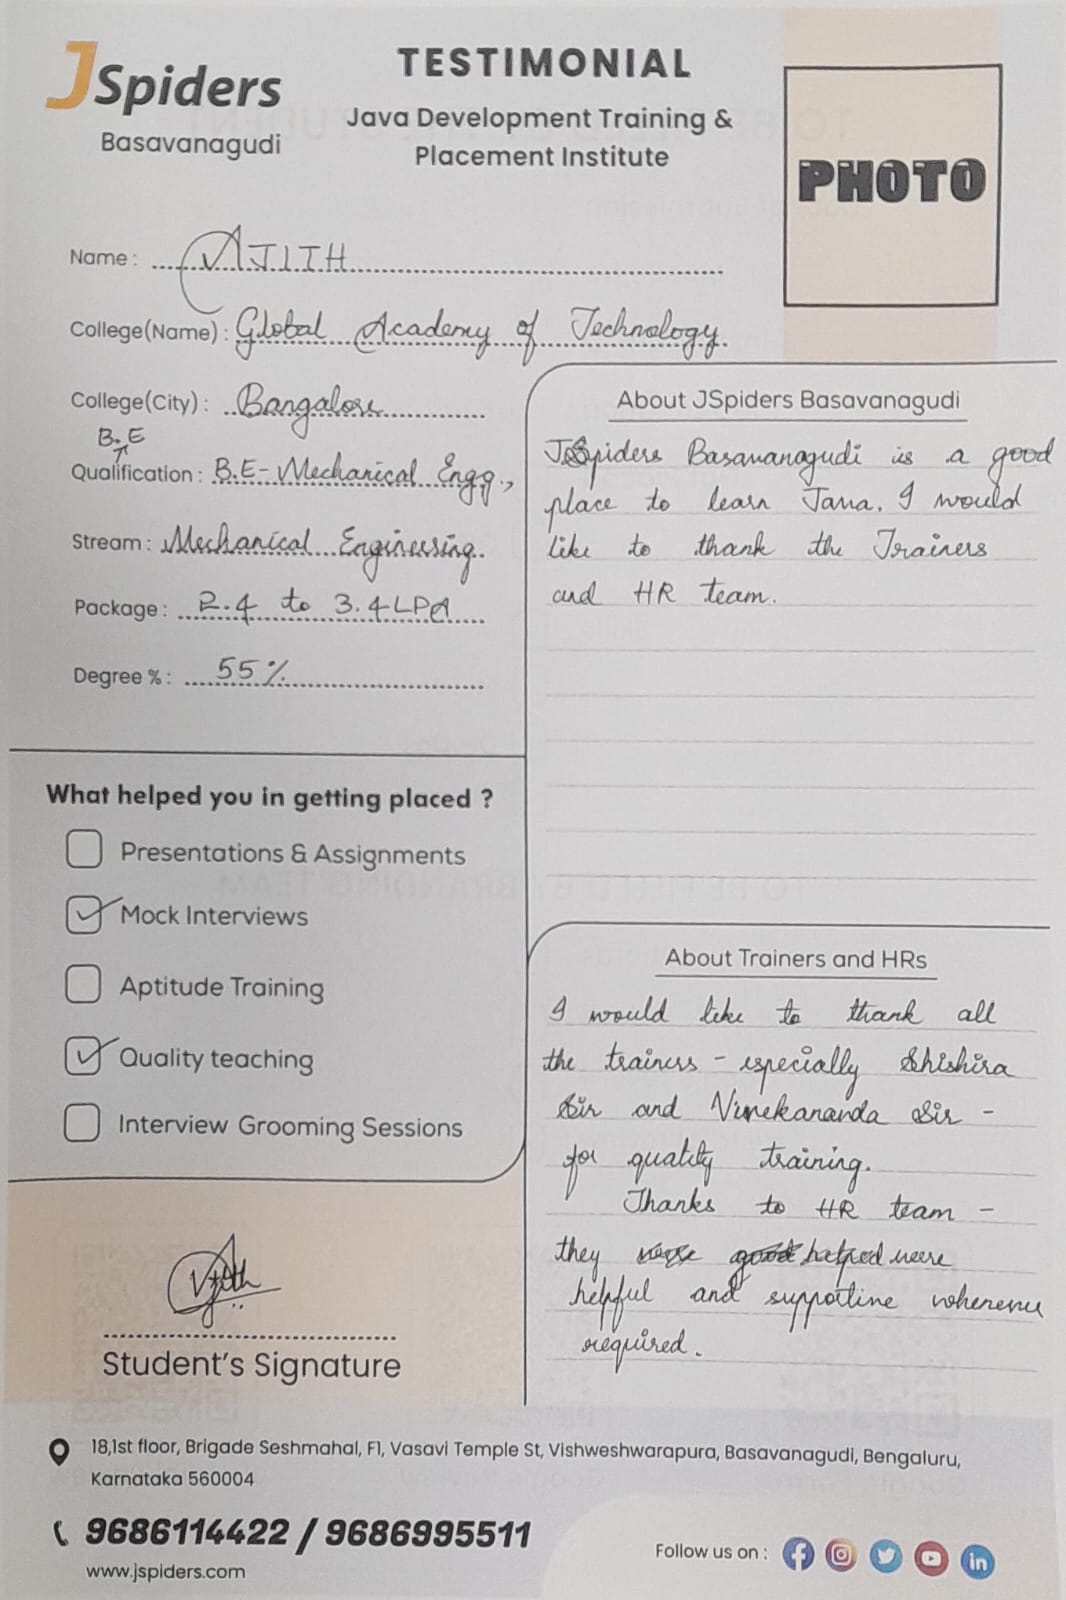 JSpiders
Basavanagudi
TESTIMONIAL
Java Development Training &
Placement Institute
PHOTO
Name : AJITH
College(Name) : Global Academy of Technology.
College(City) : Bangalore
B.E
Qualification : B.E - Mechanical Engg.,
Stream : Mechanical Engineering.
Package : 2.4 to 3.4 LPA
Degree % : 55%
What helped you in getting placed ?
Presentations & Assignments
Mock Interviews
Aptitude Training
Quality teaching
Interview Grooming Sessions
Student's Signature
About JSpiders Basavanagudi
JSpiders Basavanagudi is a good
place to learn Java. I would
like to thank the Trainers
and HR team.
About Trainers and HRs
I would like to thank all
the trainers - especially Shishira
Sir and Vivekananda Sir -
for quality training.
Thanks to HR team -
they were helpful
and supportive whenever
required.
18,1st floor, Brigade Seshmahal, F1, Vasavi Temple St, Vishweshwarapura, Basavanagudi, Bengaluru,
Karnataka 560004
9686114422 / 9686995511
www.jspiders.com
Follow us on :